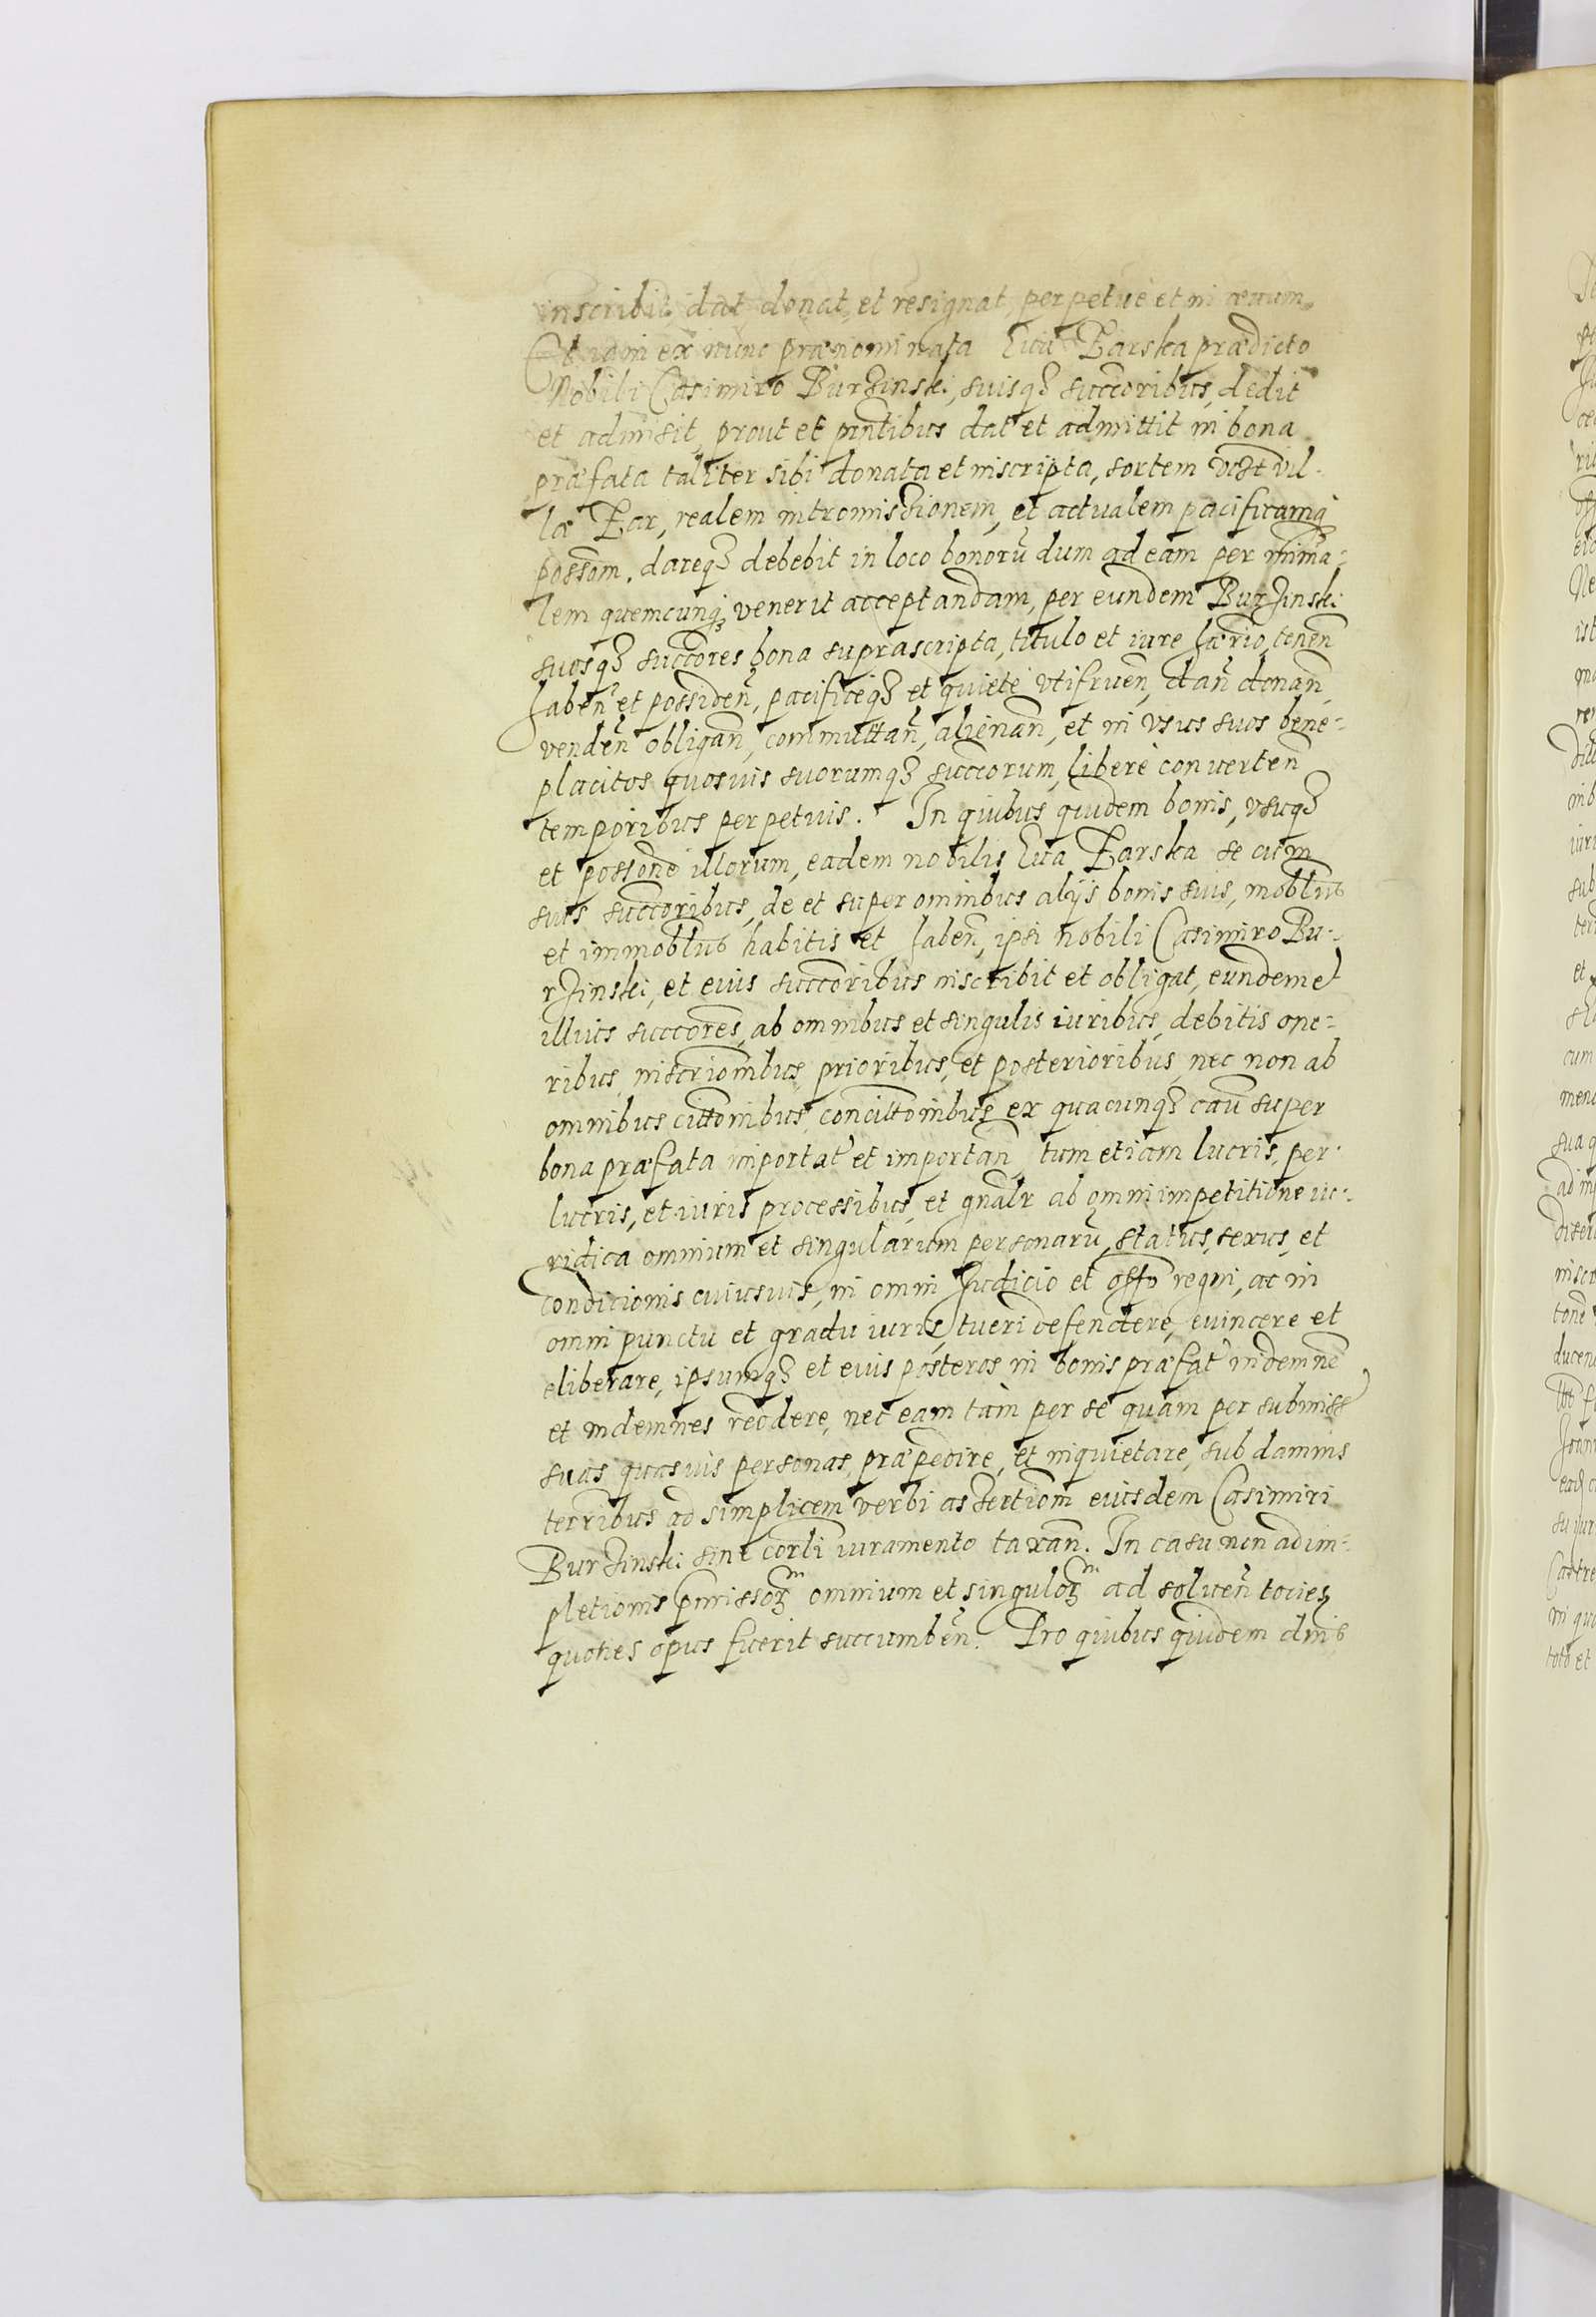 inscribit, dat, donat, et resignat, perpetuè et in æuum.
Et iam ex nunc prænominata Eua Barska prædicto
Nobili Casimiro Burzinski, suisq3 succoribus, dedit
et admisit, prout et pñtibus dat et admittit in bona
præfata taliter sibi donata et inscripta, sortem vil-
læ Bar, realem intromissionem, et actualem pacificamq̃
possom̃. dareq3 debebit in loco bonorũ dum ad eam per
lem quemcunq3 venerit acceptandam, per eundem Burzinski
suosq3 succores bona suprascripta, titulo et iure hæ̃rio, tenen̄
haben̄ et possiden̄, pacificeq3 et quietè vtifruen̄, dan̄ donan̄,
venden̄ obligan̄, commuttan̄, alienan̄, et in vsus suos bene-
placitos quosuis suorumq3 succorum, liberè conuerten̄
temporibus perpetuis. In quibus quidem bonis, vsuq3
et possone illorum, eadem nobilis Eua Barska se cum
suis succoribus, de et super omnibus alijs bonis suis, moblibus
et immoblibus habitis et haben̄, ipsi nobili Casimiro Bu-
rzinski, et eius succoribus inscribit et obligat, eundem et
illius succores, ab omnibus et singulis iuribus, debitis one-
ribus, inscriom̃bus, prioribus, et posterioribus, nec non ab
omnibus cittom̃bus, concittom̃bus, ex quacunq3 caũ super
bona præfata importat̃ et importan̄, tum etiam lucris, per-
lucris, et iuris processibus, et gñalr ab omni impetitione iu-
ridica omnium et singularum personarũ, status, sexus, et
condicionis cuiusuis, in omni Judicio et offo regni, ac in
omni punctu et gradu iuris, tueri defendere, euincere et
eliberare, ipsumq3 et eius posteros in bonis præfat̃ indemnẽ
et indemnes reddere, nec eam tàm per se quam per submiss̃
suas quasuis personas, præpedire, et inquietare, sub damnis
terribus ad simplicem verbi assertiom̃ eiusdem Casimiri
Burzinski sine corli iuramento taxan̄. In casu non adim-
pletionis p̃missorũ omnium et singulorũ ad soluen̄ tocies
quoties opus fuerit succumben̄. Pro quibus quidem dñis